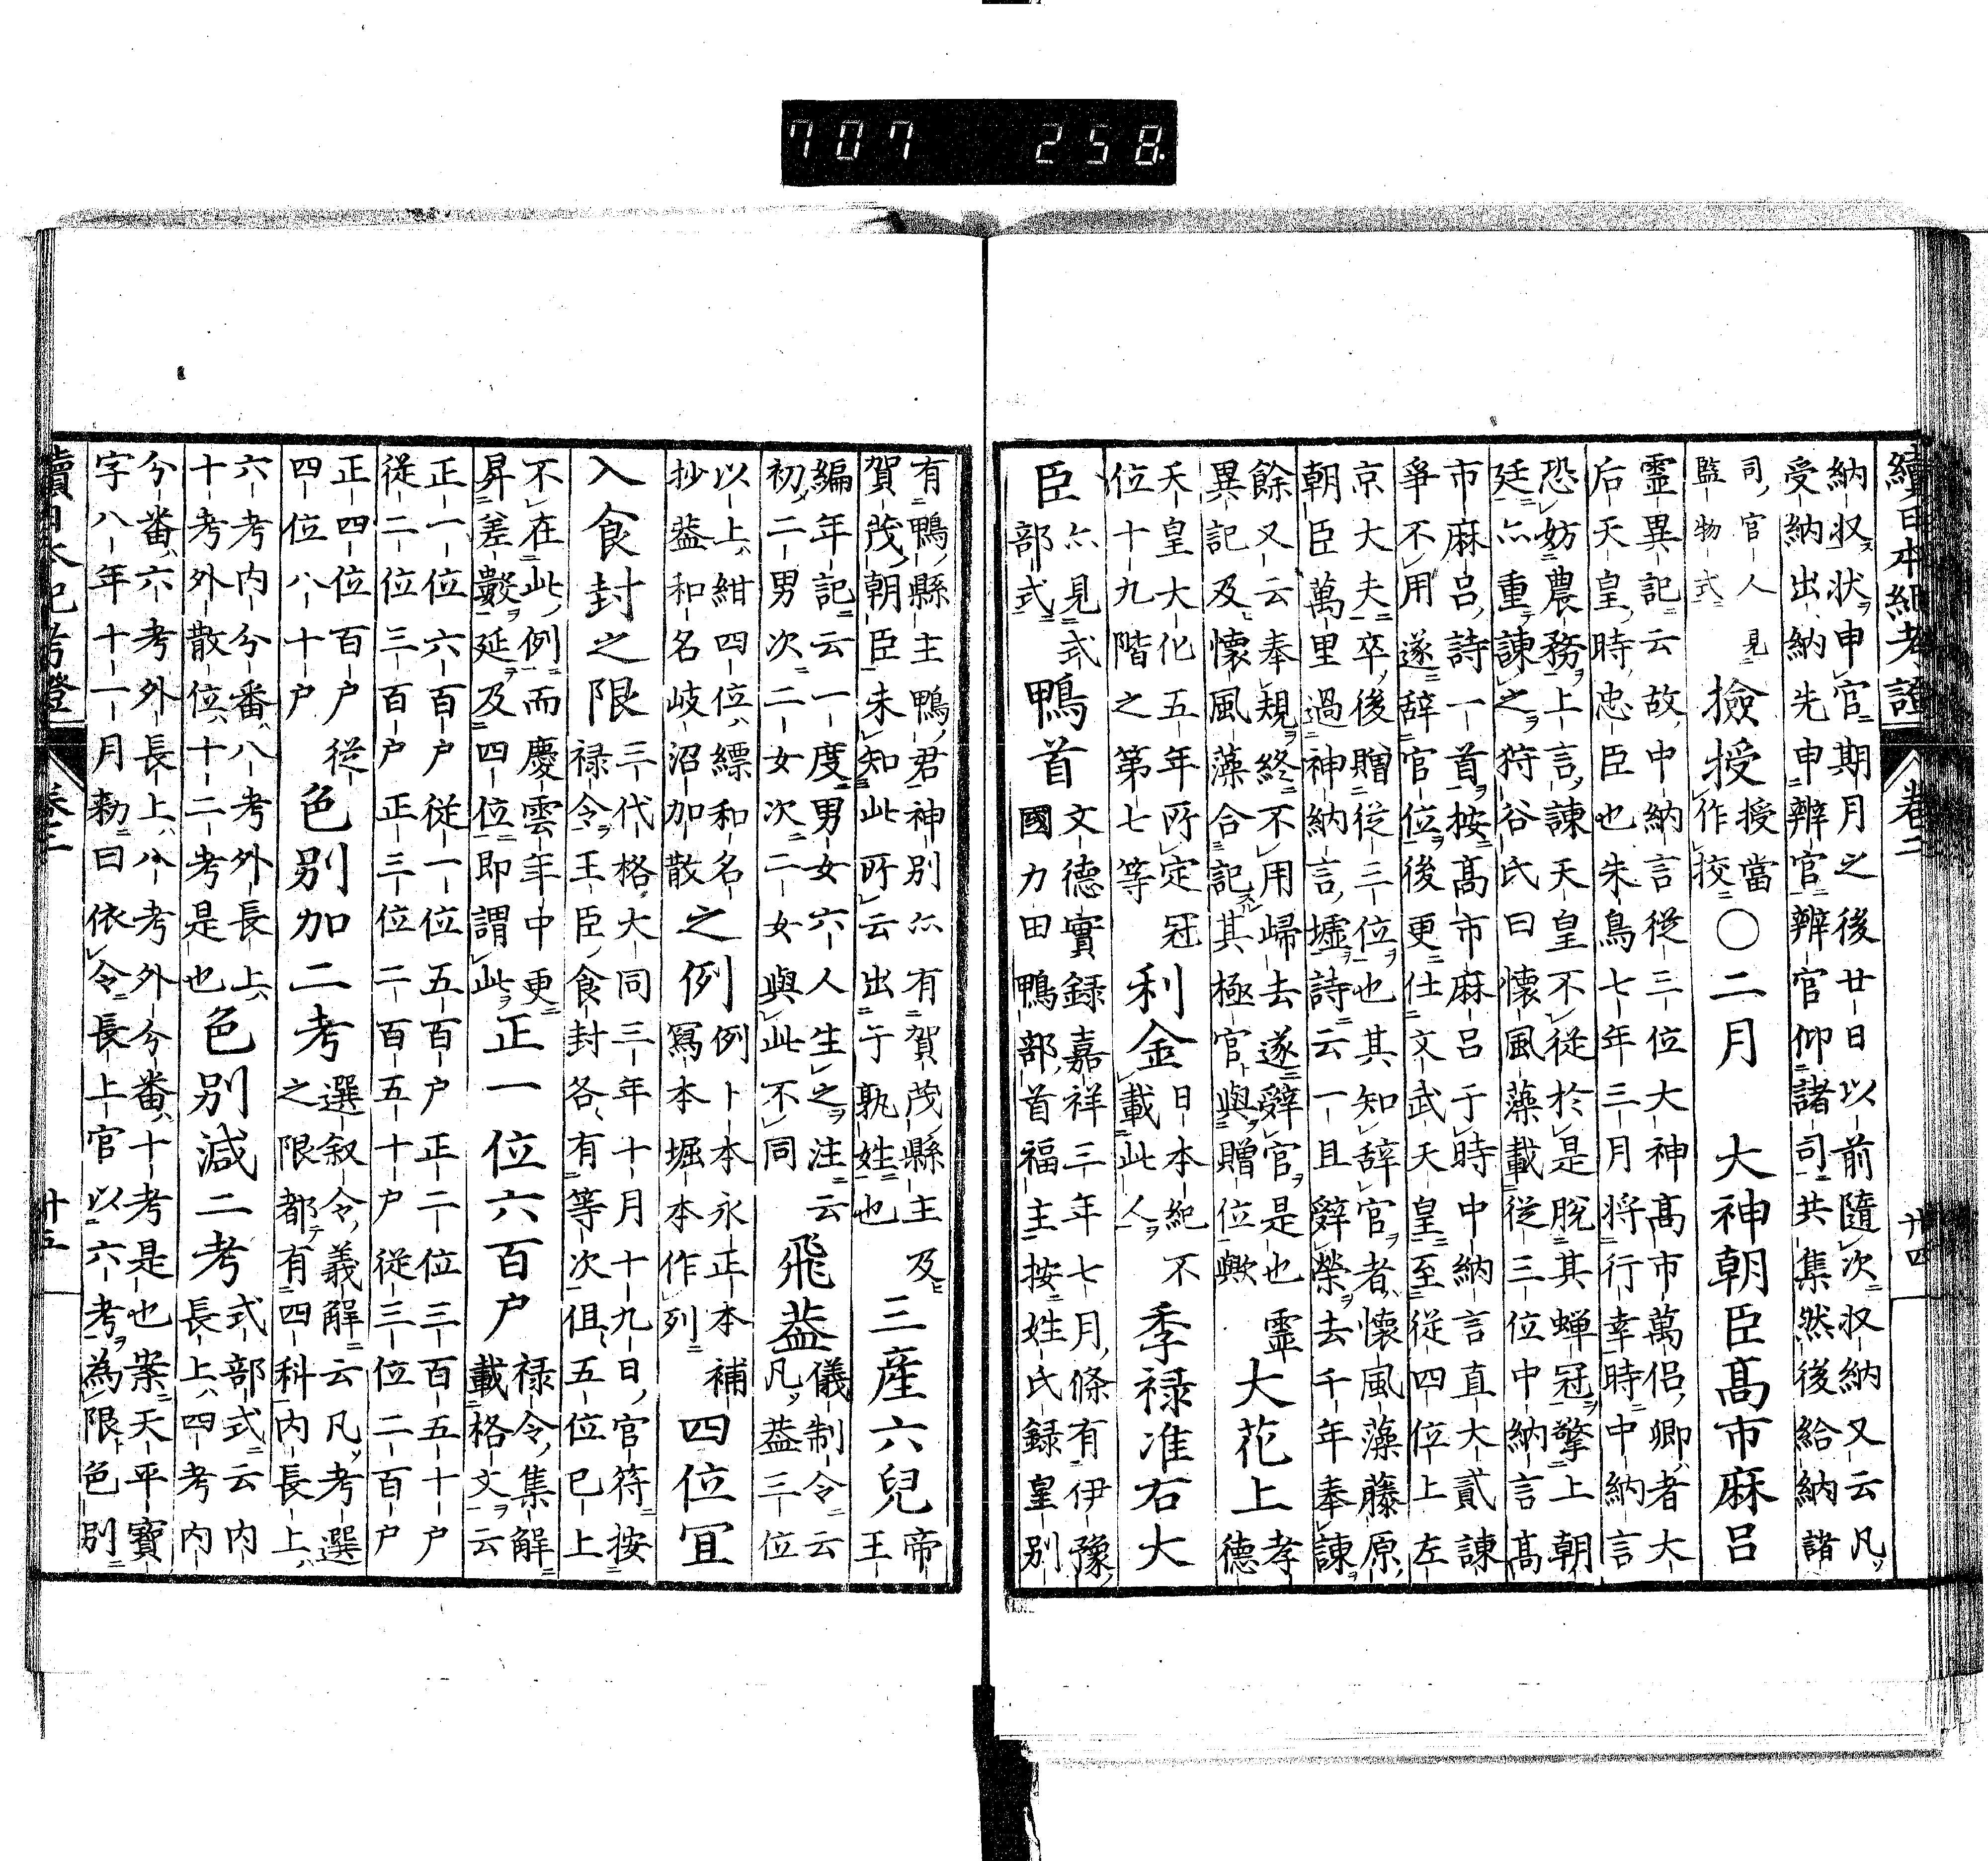 707 258
續日本紀考證 卷二 廿四
納収状申官期月之後廿日以前隨次収納又云凡
受納出納先申辨官辨官仰諸司共集然後給納諸
司官人見
監物式
撿授
授當
作挍
〇二月 大神朝臣髙市麻呂
靈異記云故中納言從三位大神髙市萬侶卿者大
后天皇時忠臣也朱鳥七年三月將行幸時中納言
恐妨農務上言諫天皇不從於是脫其蝉冠擎上朝
廷亦重諫之狩谷氏曰懷風藻載從三位中納言髙
市麻呂詩一首按髙市麻呂于時中納言直大貳諫
爭不用遂辭官位後更仕文武天皇至從四位上左
京大夫卒後贈從三位也其知辞官者懷風藻藤原
朝臣萬里過神納言墟詩云一旦辤榮去千年奉諫
餘又云奉規終不用歸去遂辤官是也靈
異記及懷風藻合記其極官與贈位歟
大花上
孝
德
天皇大化五年所定冠
位十九階之第七等
利金
日本紀不
載此人
季禄准右大
臣
亦見式
部式
鴨首
文德實録嘉祥三年七月條有伊豫
國力田鴨部首福主按姓氏録皇別
有鴨縣主鴨君神別亦有賀茂縣主及
賀茂朝臣未知此所云出于孰姓也
三産六兒
帝
王
編年記云一度男女六人生之注云
初二男次二女次二女與此不同
飛葢
儀制令云
凡葢三位
以上紺四位縹和名
抄葢和名岐沼加散
之例
例卜本永正本補
寫本堀本作列
四位冝
入食封之限
三代格大同三年十月十九日官符按
禄令王臣食封各有等次但五位已上
不在此例而慶雲年中更
昇差數延及四位即謂此
正一位六百户
禄令集解
載格文云
正一位六百户從一位五百户正二位三百五十户
從二位三百户正三位二百五十户從三位二百户
正四位百户從
四位八十户
色别加二考
選叙令義解云凡考選
之限都有四科内長上
六考内分番八考外長上
十考外散位十二考是也
色别減二考
式部式云内
長上四考内
分番六考外長上八考外分番十考是也案天平寳
字八年十一月勅曰依令長上官以六考為限色別
續日本紀考證 卷二 廿五